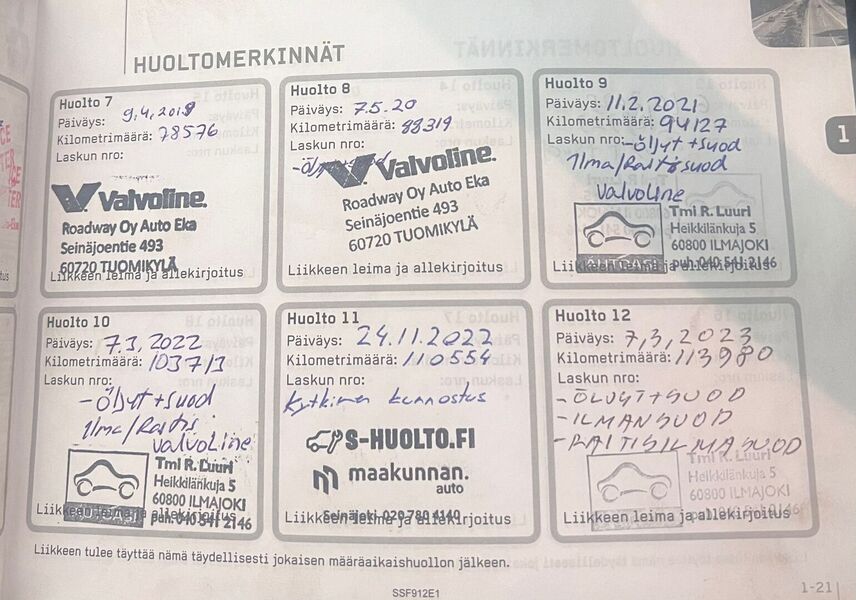 HUOLTOMERKINNÄT
Huolto 7
Päiväys: 9.4.2019
Kilometrimäärä: 78576
Laskun nro:
Valvoline.
Roadway Oy Auto Eka
Seinäjoentie 493
60720 TUOMIKYLÄ
Liikkeen leima ja allekirjoitus
Huolto 8
Päiväys: 7.5.20
Kilometrimäärä: 88319
Laskun nro:
Valvoline.
Roadway Oy Auto Eka
Seinäjoentie 493
60720 TUOMIKYLÄ
Liikkeen leima ja allekirjoitus
Huolto 9
Päiväys: 11.2.2021
Kilometrimäärä: 94127
Laskun nro: -öljyt +suod
Ilma/Raitisuod
Valvoline
Tmi R. Luuri
Heikkilänkuja 5
60800 ILMAJOKI
AUTOASI puh. 040 541 2146
Liikkeen leima ja allekirjoitus
1
Huolto 10
Päiväys: 7.3.2022
Kilometrimäärä: 103713
Laskun nro:
-öljyt +suod
Ilma/Raitis.
Valvoline
Tmi R. Luuri
Heikkilänkuja 5
60800 ILMAJOKI
AUTOASI puh. 040 541 2146
Liikkeen leima ja allekirjoitus
Huolto 11
Päiväys: 24.11.2022
Kilometrimäärä: 110554
Laskun nro:
Kytkimen kunnostus
S-HUOLTO.FI
maakunnan.
auto
Seinäjoki 020 780 4140
Liikkeen leima ja allekirjoitus
Huolto 12
Päiväys: 7,3,2023
Kilometrimäärä: 113980
Laskun nro:
-ÖLJYT+SUOD
-ILMANSUOD
-RAITISILMASUOD
Tmi R. Luuri
Heikkilänkuja 5
60800 ILMAJOKI
puh. 040 541 2146
Liikkeen leima ja allekirjoitus
Liikkeen tulee täyttää nämä täydellisesti jokaisen määräaikaishuollon jälkeen.
SSF912E1
1-21